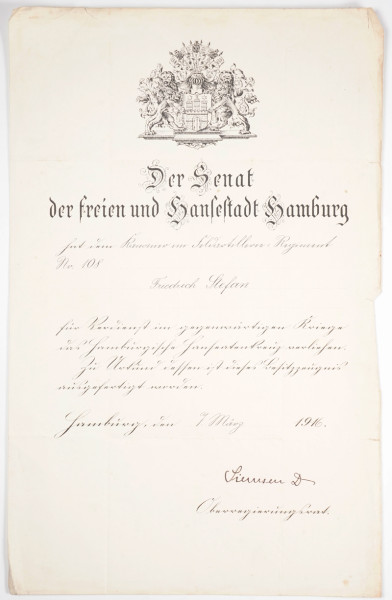 Der Senat
der freien und Hansestadt Hamburg
hat dem Kanonier im Feldartillerie-Regiment
No. 108
Friedrich Stefan
für Verdienst im gegenwärtigen Kriege
das Hamburgische Hanseatenkreuz verliehen.
Zu Urkund dessen ist dieses Besitzzeugnis
ausgefertigt worden.
Hamburg, den 7 März 1916.
Siemsen D
Oberregierungsrat.